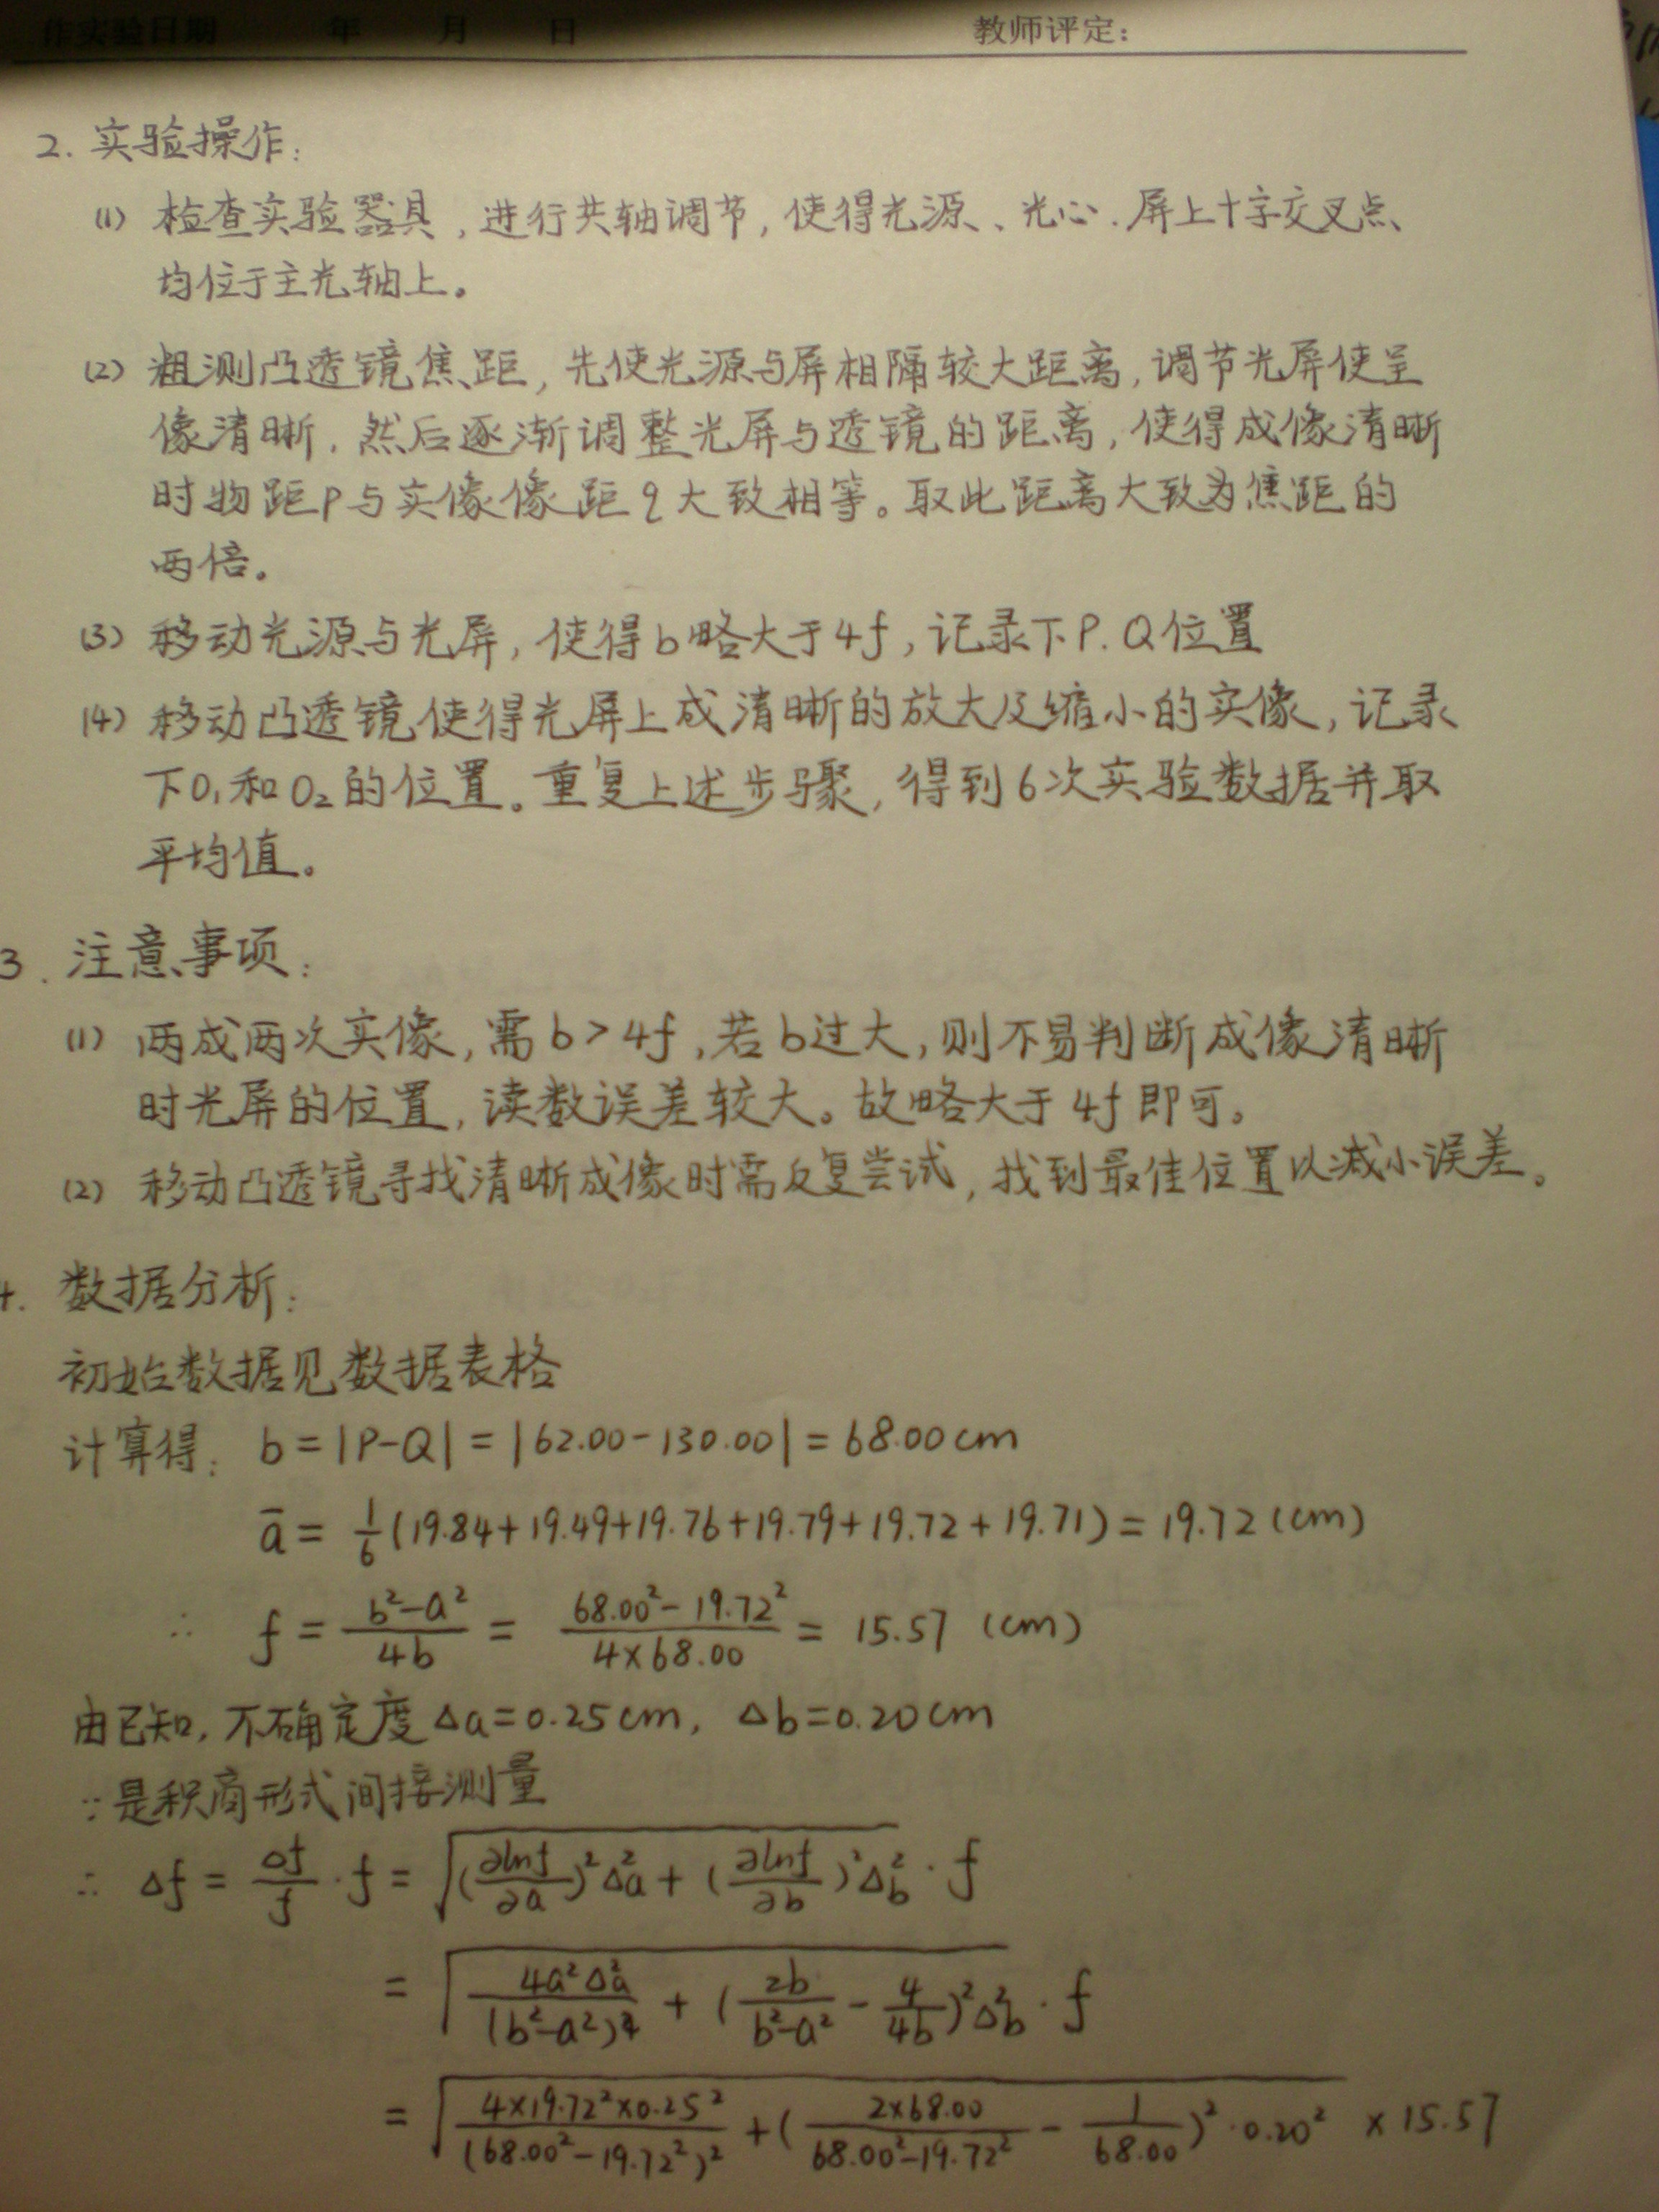 作实验日期 年 月 日 教师评定:
2. 实验操作:
(1) 检查实验器具，进行共轴调节，使得光源、光心、屏上十字交叉点
均位于主光轴上。
(2) 粗测凸透镜焦距，先使光源与屏相隔较大距离，调节光屏使呈
像清晰，然后逐渐调整光屏与透镜的距离，使得成像清晰
时物距p与实像像距q大致相等。取此距离大致为焦距的
两倍。
(3) 移动光源与光屏，使得b略大于4f，记录下P.Q位置
(4) 移动凸透镜使得光屏上成清晰的放大及缩小的实像，记录
下O₁和O₂的位置。重复上述步骤，得到6次实验数据并取
平均值。
3. 注意事项:
(1) 两成两次实像，需b>4f，若b过大，则不易判断成像清晰
时光屏的位置，读数误差较大。故略大于4f即可。
(2) 移动凸透镜寻找清晰成像时需反复尝试，找到最佳位置以减小误差。
4. 数据分析:
初始数据见数据表格
计算得: b=|P-Q|=|62.00-130.00|=68.00cm
ā= 1/6(19.84+19.49+19.76+19.79+19.72+19.71)=19.72(cm)
∴ f = (b²-a²)/(4b) = (68.00²-19.72²)/(4×68.00) = 15.57 (cm)
由已知，不确定度Δa=0.25cm, Δb=0.20cm
∵是积商形式间接测量
∴ Δf = Δf/f · f = √((∂lnf/∂a)²Δ²a + (∂lnf/∂b)²Δ²b) · f
= √(4a²Δ²a/(b²-a²)² + (2b/(b²-a²) - 4/4b)²Δ²b) · f
= √(4×19.72²×0.25²/(68.00²-19.72²)² + (2×68.00/(68.00²-19.72²) - 1/68.00)²·0.20²) × 15.57